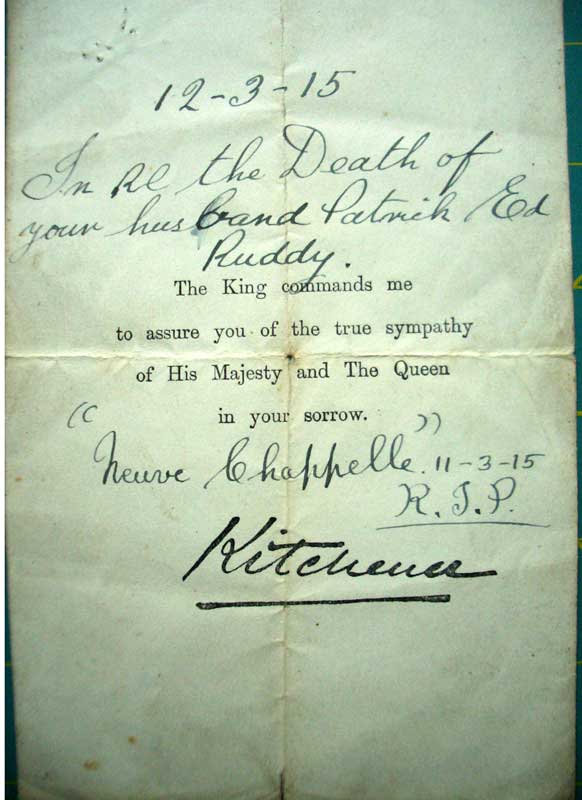 12-3-15
In re the Death of
your husband Patrick Ed
Ruddy.
The King commands me
to assure you of the true sympathy
of His Majesty and The Queen
in your sorrow.
"Neuve Chappelle". 11-3-15
R.I.P.
Kitchener